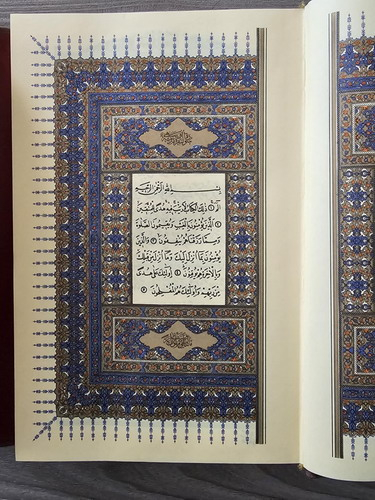 بِسْمِ اللهِ الرَّحْمٰنِ الرَّحِيمِ
الٓمٓ ۝ ذٰلِكَ الْكِتَابُ لَا رَيْبَ فِيهِ هُدًى لِلْمُتَّقِينَ
۝ اَلَّذِينَ يُؤْمِنُونَ بِالْغَيْبِ وَيُقِيمُونَ الصَّلٰوةَ
وَمِمَّا رَزَقْنَاهُمْ يُنْفِقُونَ ۝ وَالَّذِينَ
يُؤْمِنُونَ بِمَا اُنْزِلَ اِلَيْكَ وَمَا اُنْزِلَ مِنْ قَبْلِكَ
وَبِالْاٰخِرَةِ هُمْ يُوقِنُونَ ۝ اُولٰئِكَ عَلٰى هُدًى
مِنْ رَبِّهِمْ وَاُولٰئِكَ هُمُ الْمُفْلِحُونَ ۝